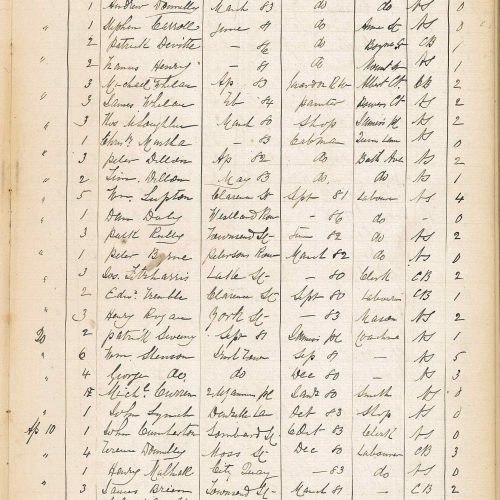 1 Andrew Donnelly March 83 do do NS 0
" 1 Stephen Carroll June 81 do Anne St NS 0
2 Patrick Deville — 86 do Boyne St CB 1
" 2 James Henry — 81 do Mount St NS 1
3 Michael Whelan Ap 83 Albert Ct CB 2
" 3 James Whelan Feb 84 Painter Ct NS 2
" 3 Thos McLoughlin March 80 Shop pl NS 2
" 1 Christr Murtha — 83 Cabman Lane NS 0
3 Peter Dillon Ap 82 do Bath Ave NS 2
" 2 Dillon May 83 do do NS 1
" 5 Wm Lupton Clarence St Sept 81 Labourer NS 4
1 Danl Daly Westland Row — 86 do - 0
" 3 Patk Reilly Townsend St June 82 do NS 2
" 1 Peter Byrne Petersons Row March 82 do NS 0
3 Jos. Fitzharris Luke St — 80 Clerk CB 2
" 2 Edwd Tremble Clarence St Sept 80 Labourer CB 1
3 Henry Bryan York St — 83 Mason NS 2
Do 2 Patrick Sept 81 pl NS 1
" 6 Wm Stenson Sep 81 — NS 5
" 4 George do. do Dec 80 — NS 3
1 Michl Curren pl 83 Smith NS 0
" 1 John Lynch Lane Oct 83 Shop NS 0
Ap 10 1 John Comberton Lombard St Oct 83 Clerk NS 0
" 4 Terence Donnelly Moss St Dec 80 Labourer CB 3
1 Henry Mulhall City Quay — 83 do NS 0
" 3 James Breen Townsend St March 81 — CB 2